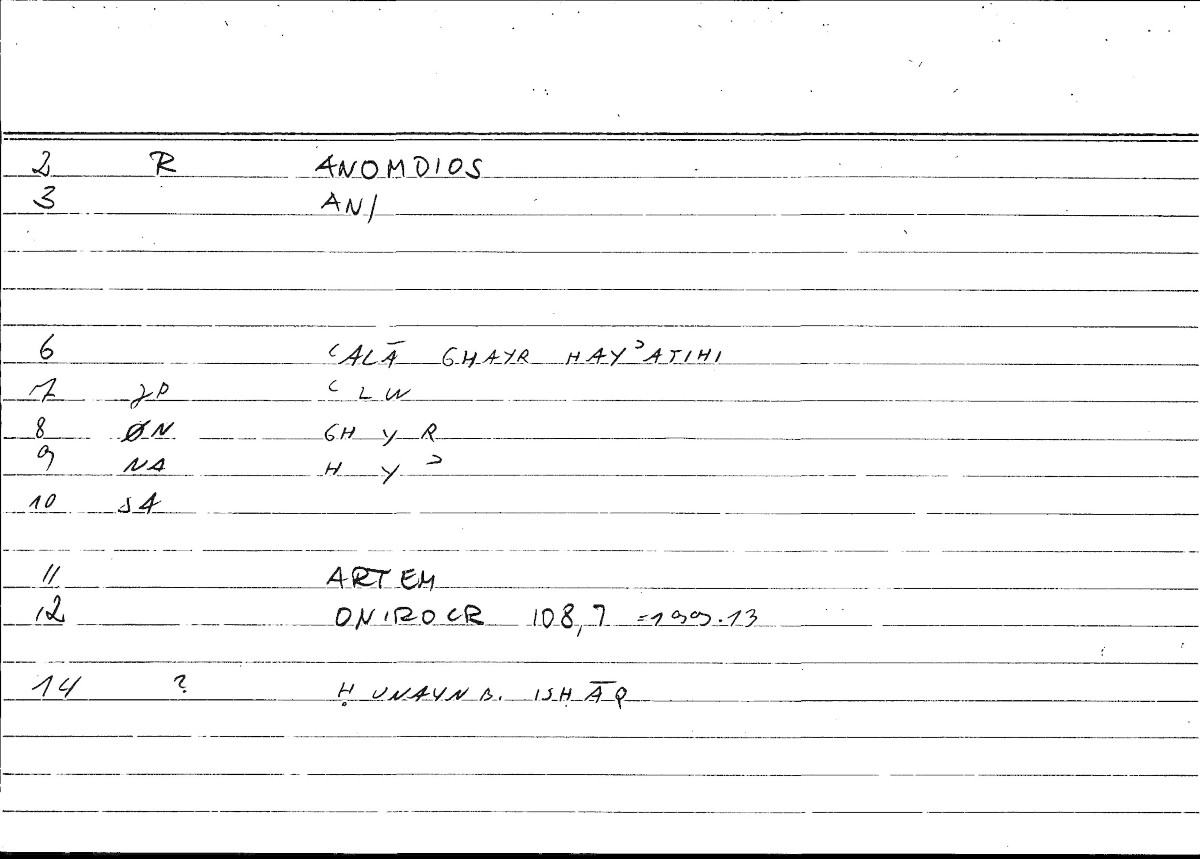 2 R ANOMOIOS
3 AN/
6 ʿALĀ GHAYR HAYʾATIHI
7 JP ʿLW
8 ØN GH Y R
9 NA H Y ʾ
10 S4
11 ARTEM
12 ONIROCR 108,7 =199.13
14 ? ḤUNAYN B. ISḤĀQ